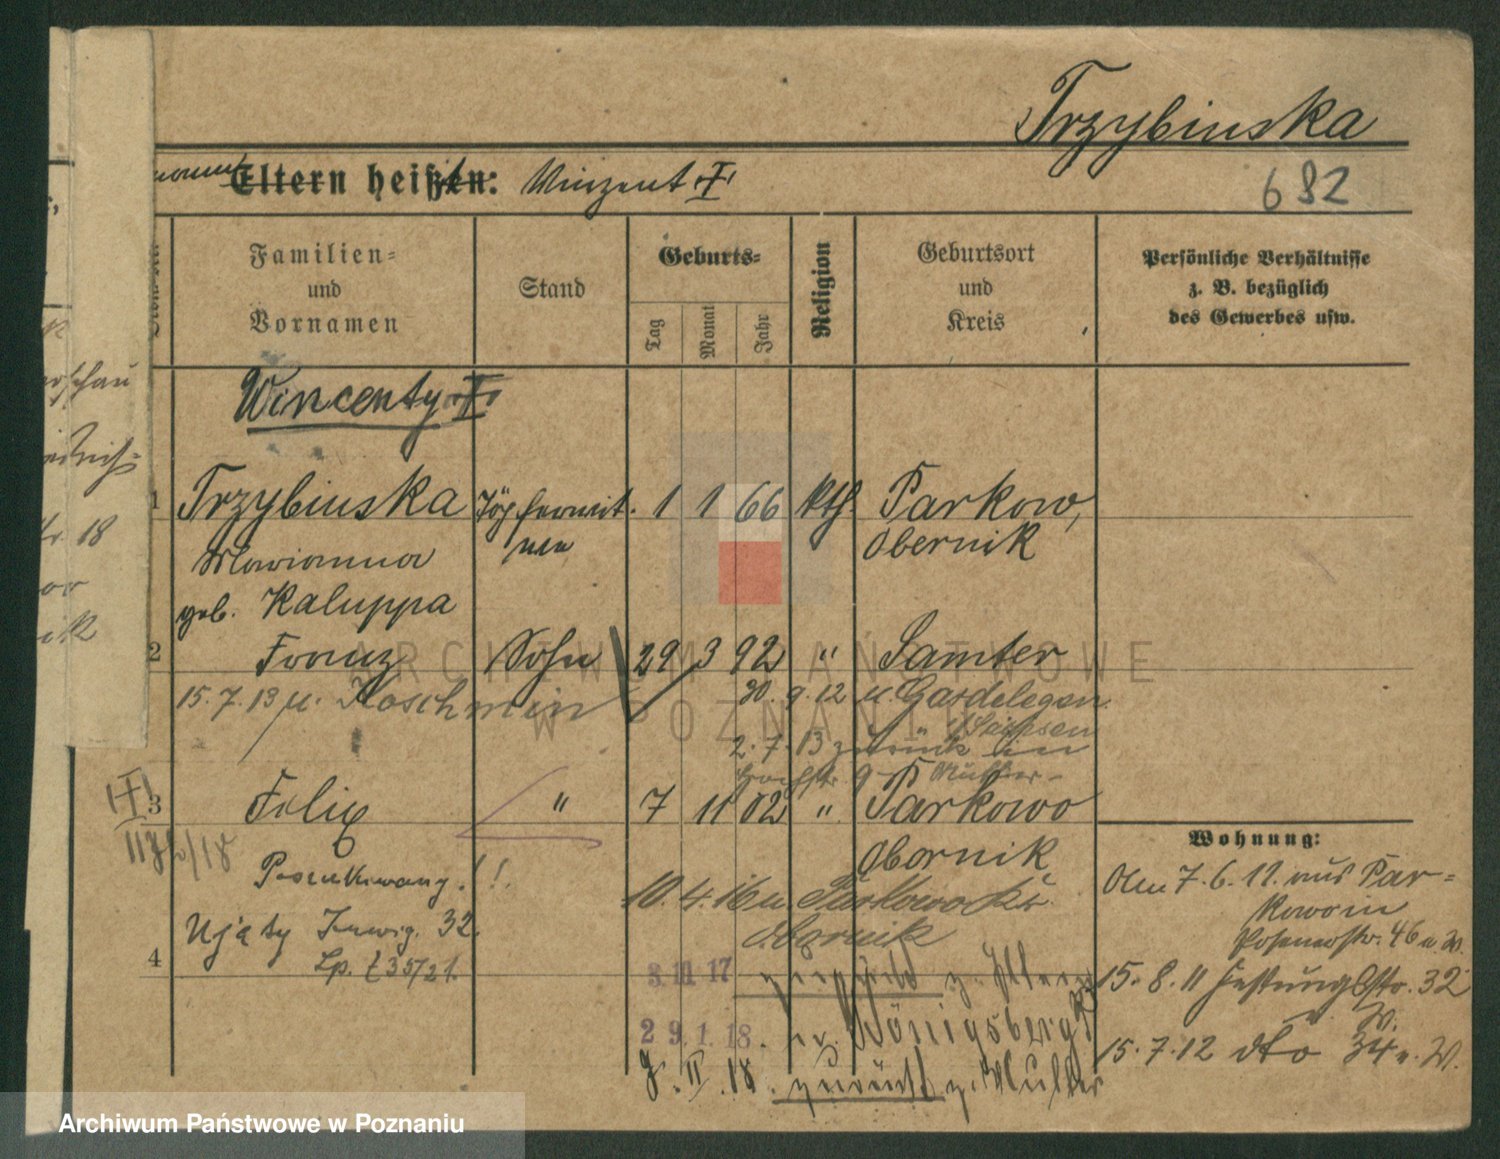 Trzybinska
Eltern heißen: Vinzent
682
Familien= und Vornamen
Stand
Geburts=
Tag
Monat
Jahr
Religion
Geburtsort und Kreis
Persönliche Verhältnisse
z. B. bezüglich
des Gewerbes usw.
Wincenty
1 Trzybinska 1 1 66 kth. Parkow,
Marianna Obernik
geb. Kaluppa
2 Franz Sohn 29 3 92 " Samter
15.7.13 u. Koschmin 30.9.12 u. Gardelegen
Sachsen
2.7.13 zurück
3 Felix " 7 11 02 " Parkowo
Obornik
Wohnung:
Poszukiwany. !!
10.4.16 u. Parkowo Kr.
Obornik
7.6.11 aus Par=
kowo in
Posenerstr. 46 u. W.
Ujęty 32
4 Lp. 35/21.
8 11 17 z. Eltern
15.8.11 Festungsstr. 32
u. W.
29.1.18. Königsberg
15.7.12 dto 34 u. W.
9.II.18. zurück z. Mutter
18
ARCHIWUM PAŃSTWOWE
W POZNANIU
Archiwum Państwowe w Poznaniu